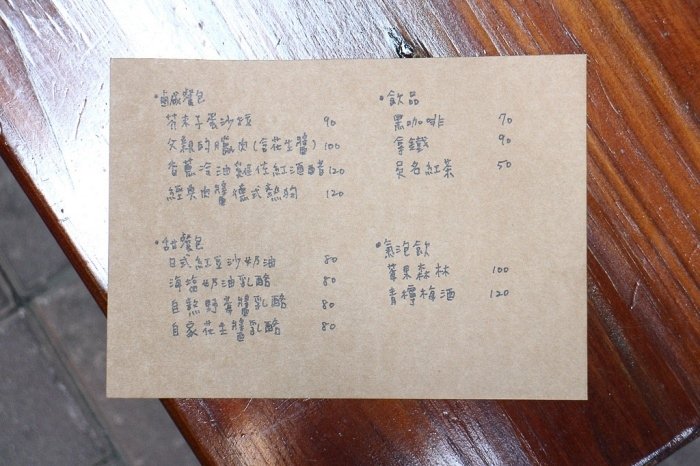 •鹹餐包
芥末子蛋沙拉 90
父親的臘肉(含花生醬) 100
香蔥冷油雞佐紅酒醋 120
經典肉醬德式熱狗 120
•甜餐包
日式紅豆沙奶油 80
海塩奶油乳酪 80
自熬野莓醬乳酪 80
自家花生醬乳酪 80
•飲品
黑咖啡 70
拿鐵 90
員名紅茶 50
•氣泡飲
莓果森林 100
青檸梅酒 120